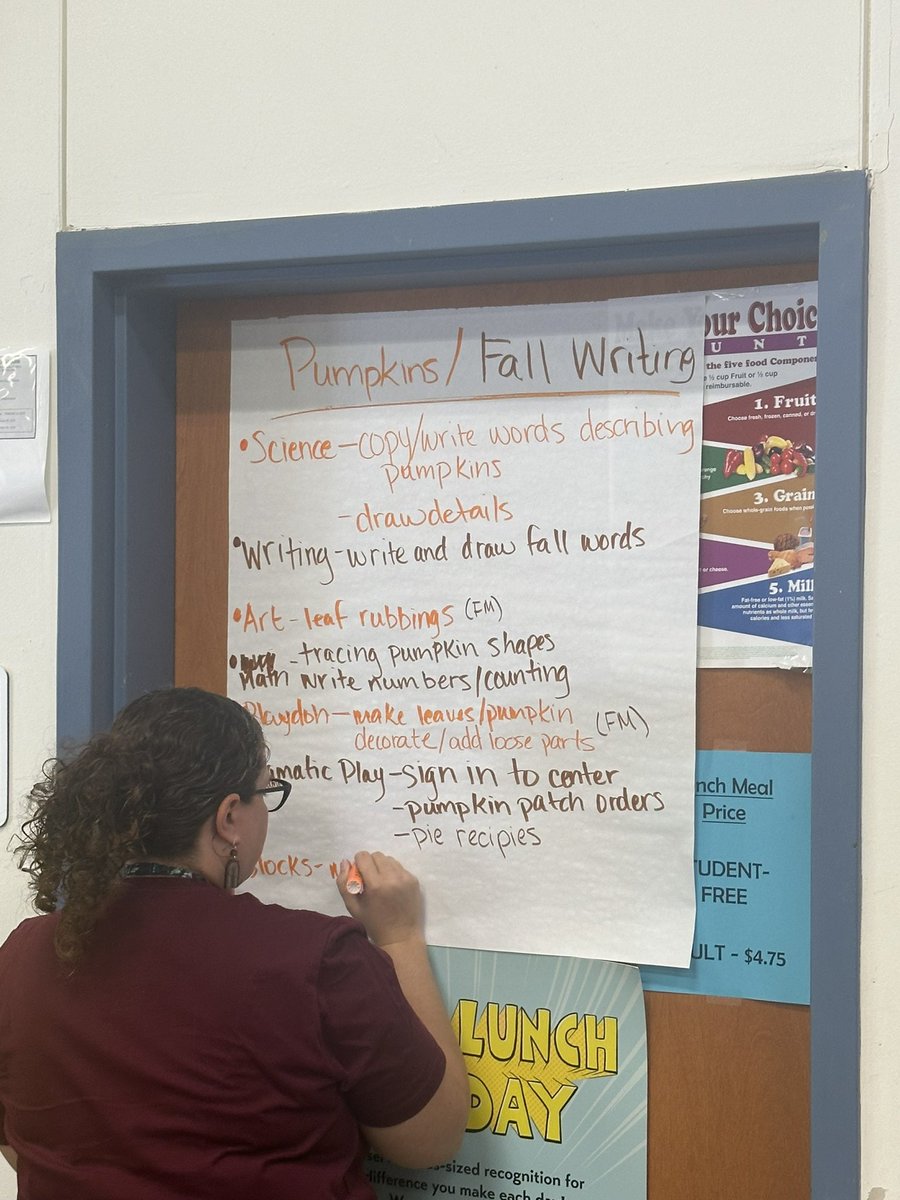 Pumpkins/Fall Writing
•Science-copy/write words describing
pumpkins
-draw details
•Writing-write and draw fall words
•Art-leaf rubbings (FM)
-tracing pumpkin shapes
Math write numbers/counting
Playdoh-make leaves/pumpkin (FM)
decorate/add loose parts
Play-sign in to center
-pumpkin patch orders
-pie recipies
Blocks-
our Choic
U N T
the five food Compone
½ cup Fruit or ½ cup
reimbursable.
1. Fruit
Choose fresh, frozen, canned, or
3. Grain
Choose whole-grain foods when
or choose.
5. Mil
Fat-free or low-fat (1%) milk.
amount of calcium and other
nutrients as whole milk, but
calories and less saturated
nch Meal
Price
TUDENT-
FREE
ULT - $4.75
LUNCH
DAY
-sized recognition for
difference you make each